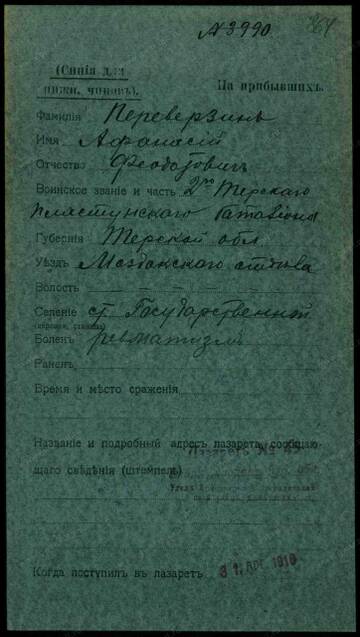 № 3990 364
(Синія для нижн. чиновъ).
На прибывшихъ.
Фамилія Переверзинъ
Имя Афанасій
Отчество Феодотовичъ
Воинское званіе и часть 2го Терскаго
пластунскаго баталіона
Губернія Терской обл.
Уѣздъ Моздокскаго отдѣла
Волость
Селеніе ст. Государственной
Боленъ ревматизмъ
Раненъ
Время и мѣсто сраженія
Названіе и подробный адресъ лазарета, сообщаю-
щаго свѣдѣнія (штемпель)
Лазаретъ №
Когда поступилъ въ лазаретъ 31. АВГ 1916